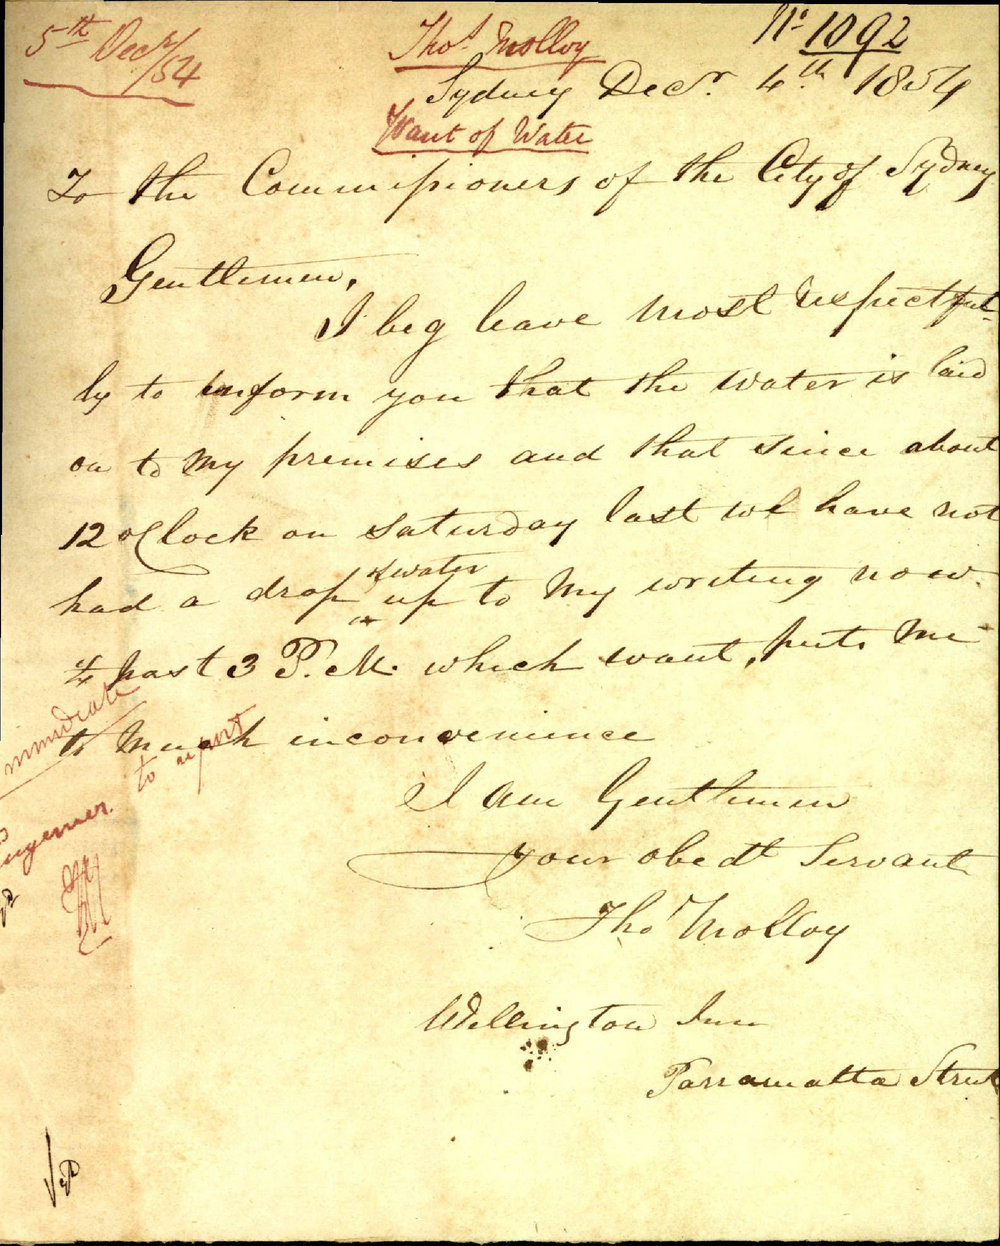 5th Decr/54
Thos Molloy
No 1092
Sydney Decr. 4th 1854
Want of Water
To the Commissioners of the City of Sydney
Gentlemen,
I beg leave most respectful-
ly to inform you that the water is laid
on to my premises and that since about
12 oClock on Saturday last we have not
had a drop of water up to my writing now
1/4 past 3 P.M. which want, puts me
to much inconvenience
immediate
to report
Engineer.
I am Gentlemen
your obedt Servant
Thos Molloy
Wellington Inn
Parramatta Street